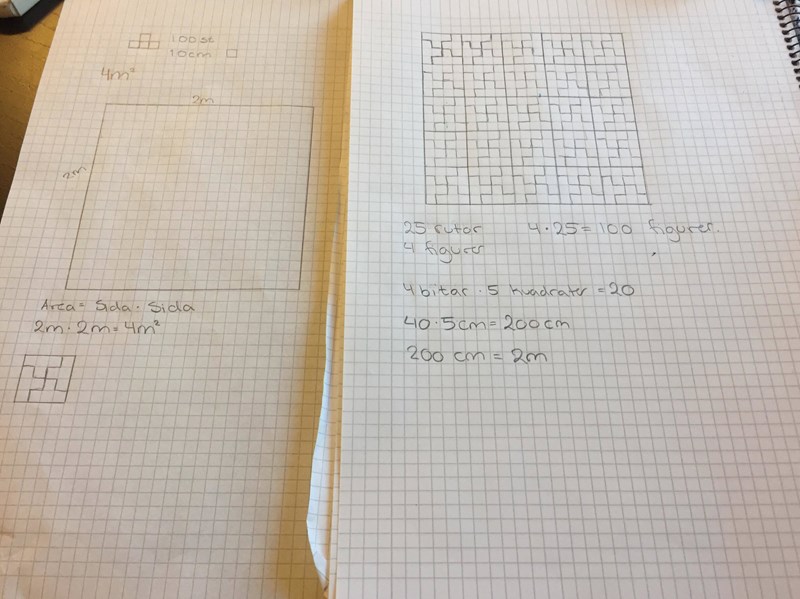 100 st
10cm
4m²
2m
2m
Area = Sida · Sida
2m · 2m = 4m²
25 rutor 4 · 25 = 100 figurer.
4 figurer
4 bitar · 5 kvadrater = 20
40 · 5cm = 200cm
200 cm = 2m